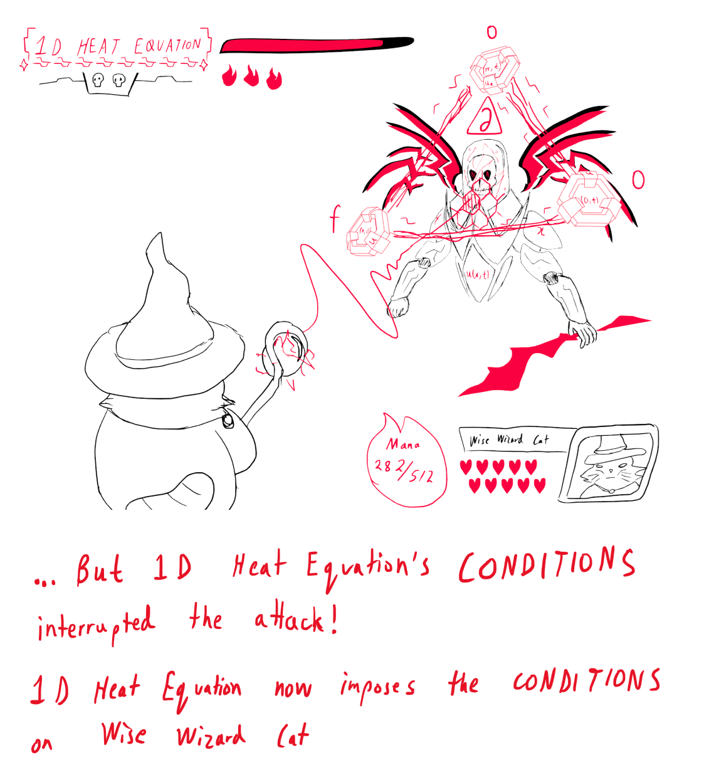 1D HEAT EQUATION
0
∂
0
f
(0,t)
x
u(x,t)
Mana
282/512
Wise Wizard Cat
... But 1D Heat Equation's CONDITIONS
interrupted the attack!
1D Heat Equation now imposes the CONDITIONS
on Wise Wizard Cat